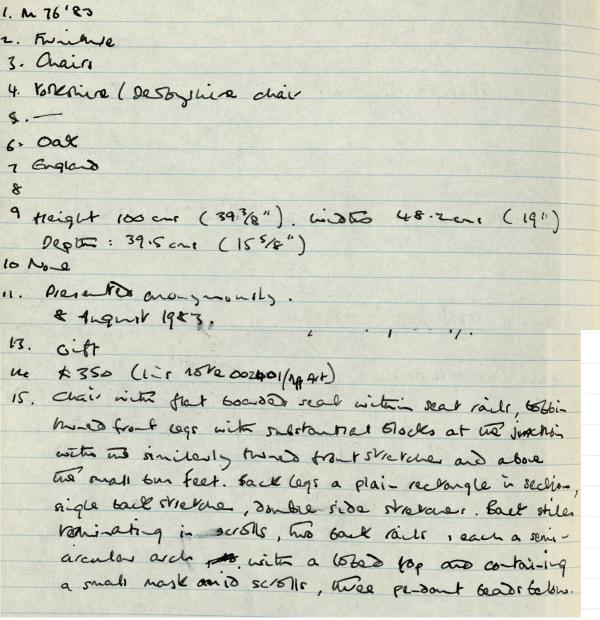 1. M 76'83
2. Furniture
3. Chairs
4. Yorkshire / Derbyshire chair
5. —
6. Oak
7 England
8
9 Height 100 cms (39 3/8"). Width 48.2 cms (19")
Depth: 39.5 cms (15 5/8")
10 None
11. Presented anonymously.
8 August 1983.
13. Gift
14 £350 (Ins note
15. Chair with flat boarded seat within seat rails, bobbin
turned front legs with substantial blocks at the junction
with the similarly turned front stretcher and above
the small bun feet. Back legs a plain rectangle in section,
single back stretcher, double side stretcher. Back stiles
terminating in scrolls, two back rails, each a semi-
circular arch with a lobed top and containing
a small mask amid scrolls, three pendant beads below.